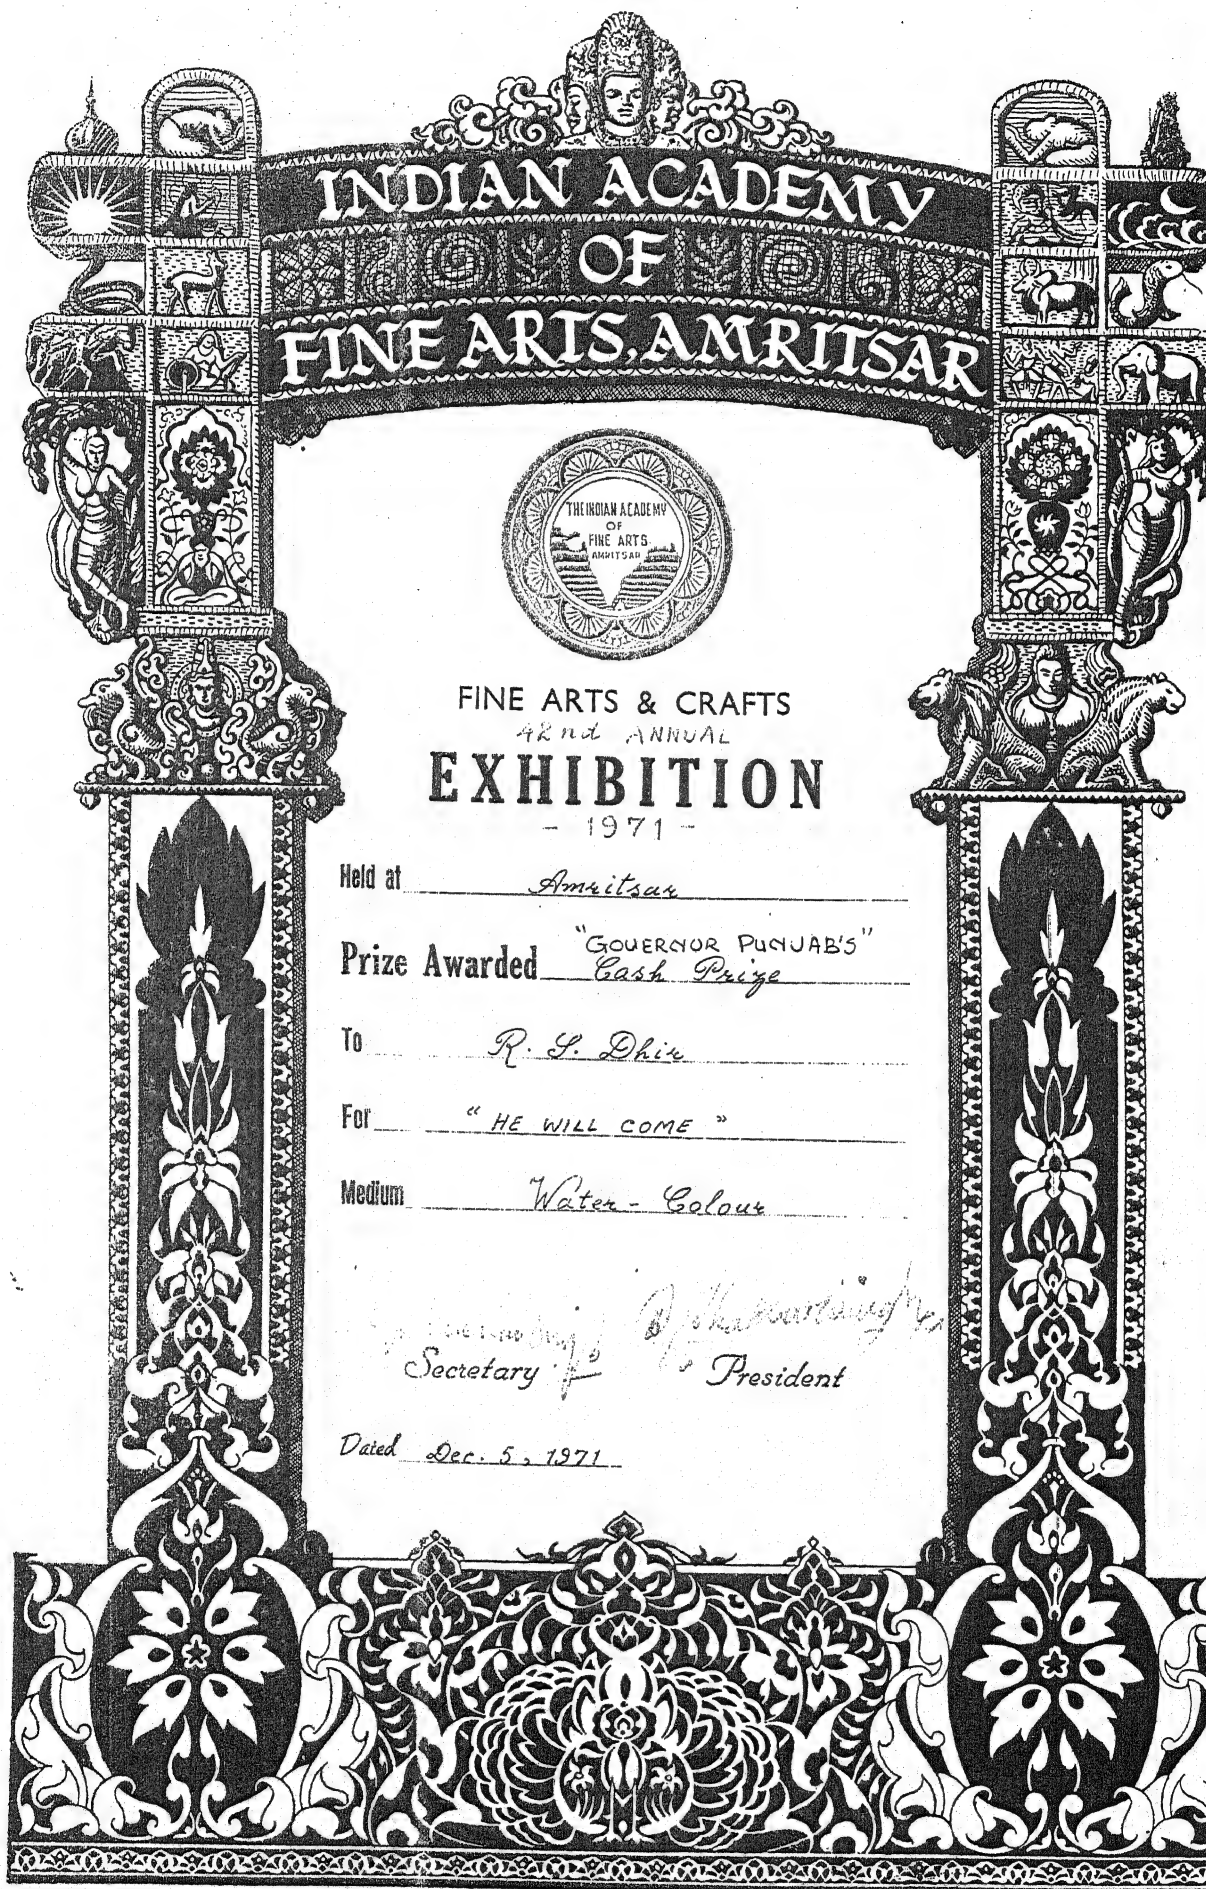 INDIAN ACADEMY
OF
FINE ARTS, AMRITSAR
THE INDIAN ACADEMY
OF
FINE ARTS
AMRITSAR
FINE ARTS & CRAFTS
42nd ANNUAL
EXHIBITION
- 1971 -
Held at Amritsar
Prize Awarded "GOVERNOR PUNJAB'S"
Cash Prize
To R. S. Dhir
For "HE WILL COME"
Medium Water - Colour
Secretary President
Dated Dec. 5, 1971